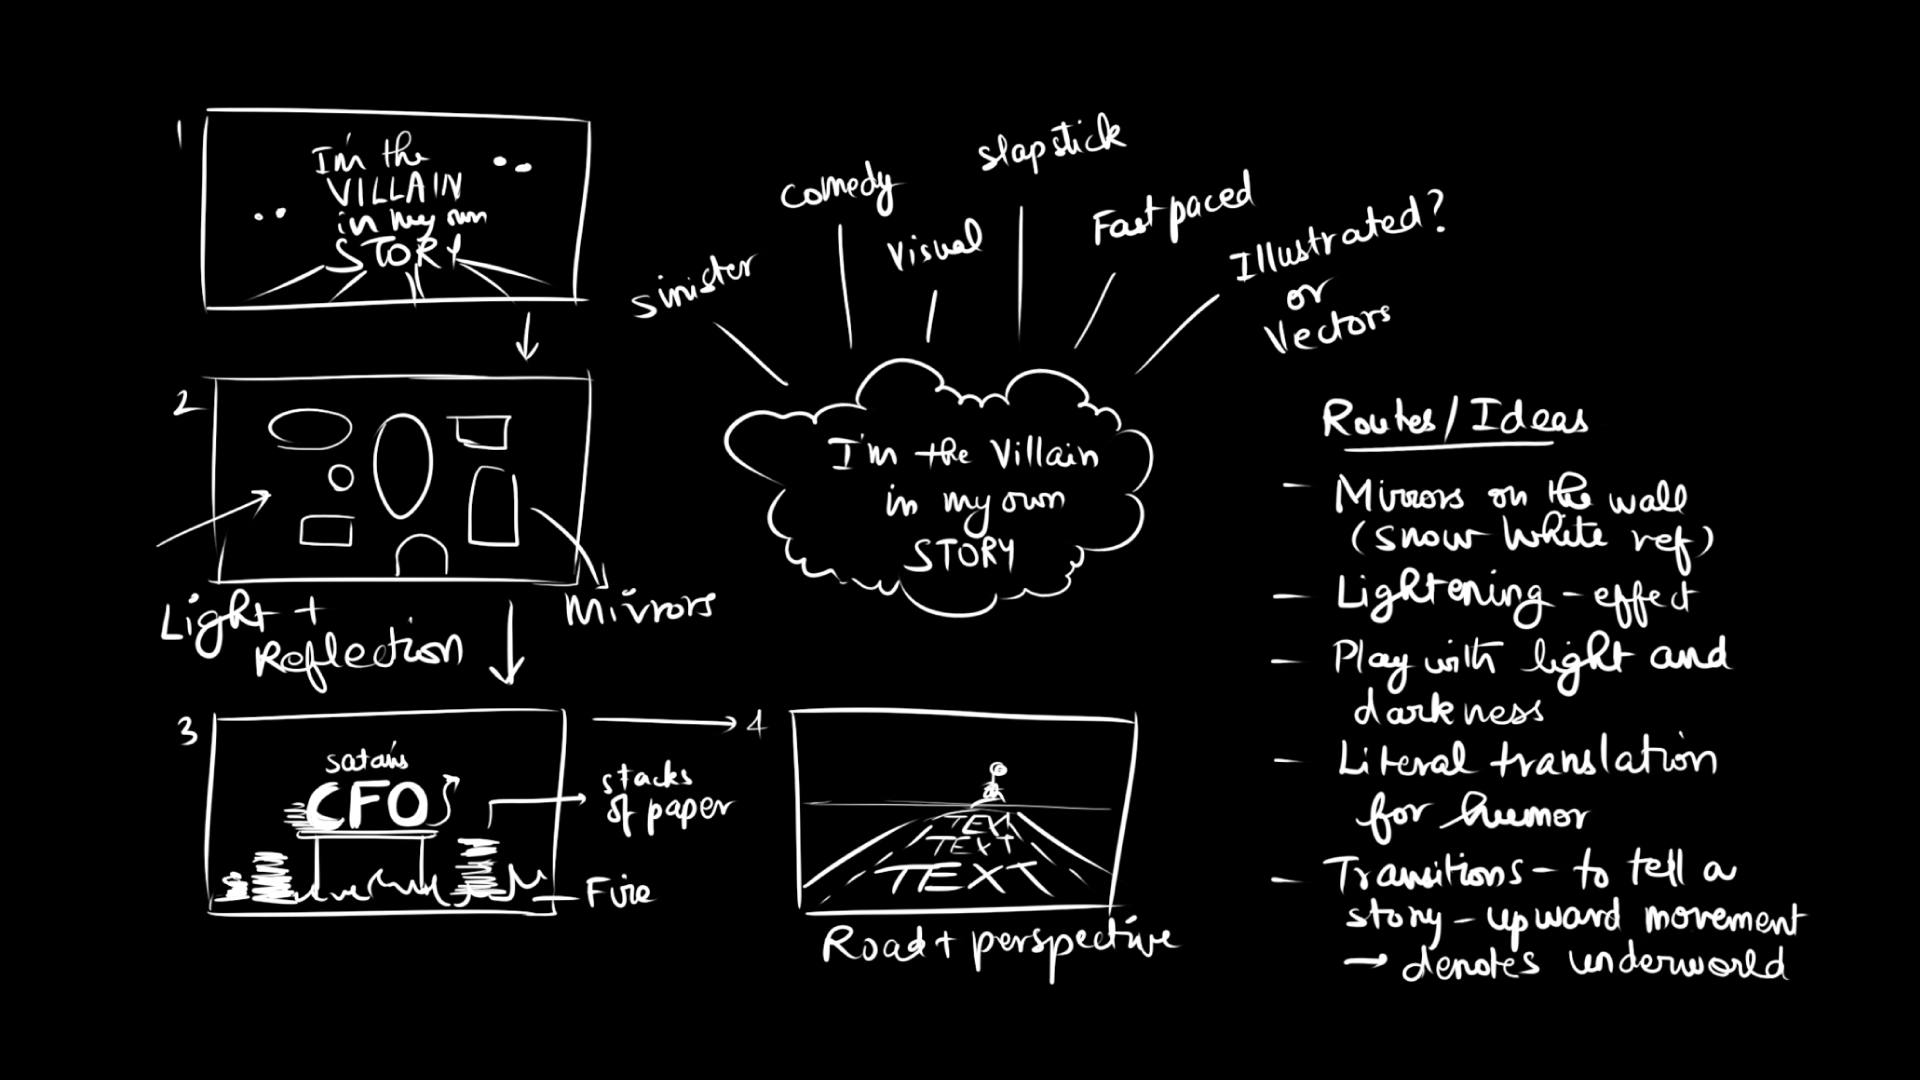 1
I'm the
VILLAIN
in my own
STORY
2
Light +
Reflection
Mirrors
3
satan's
CFO
stacks
of paper
Fire
4
TEXT
TEXT
TEXT
Road + perspective
sinister
comedy
Visual
slapstick
Fast paced
Illustrated?
or
Vectors
I'm the Villain
in my own
STORY
Routes/Ideas
- Mirrors on the wall
(snow white ref)
- Lightening - effect
- Play with light and
darkness
- Literal translation
for humor
- Transitions - to tell a
story - upward movement
→ denotes underworld